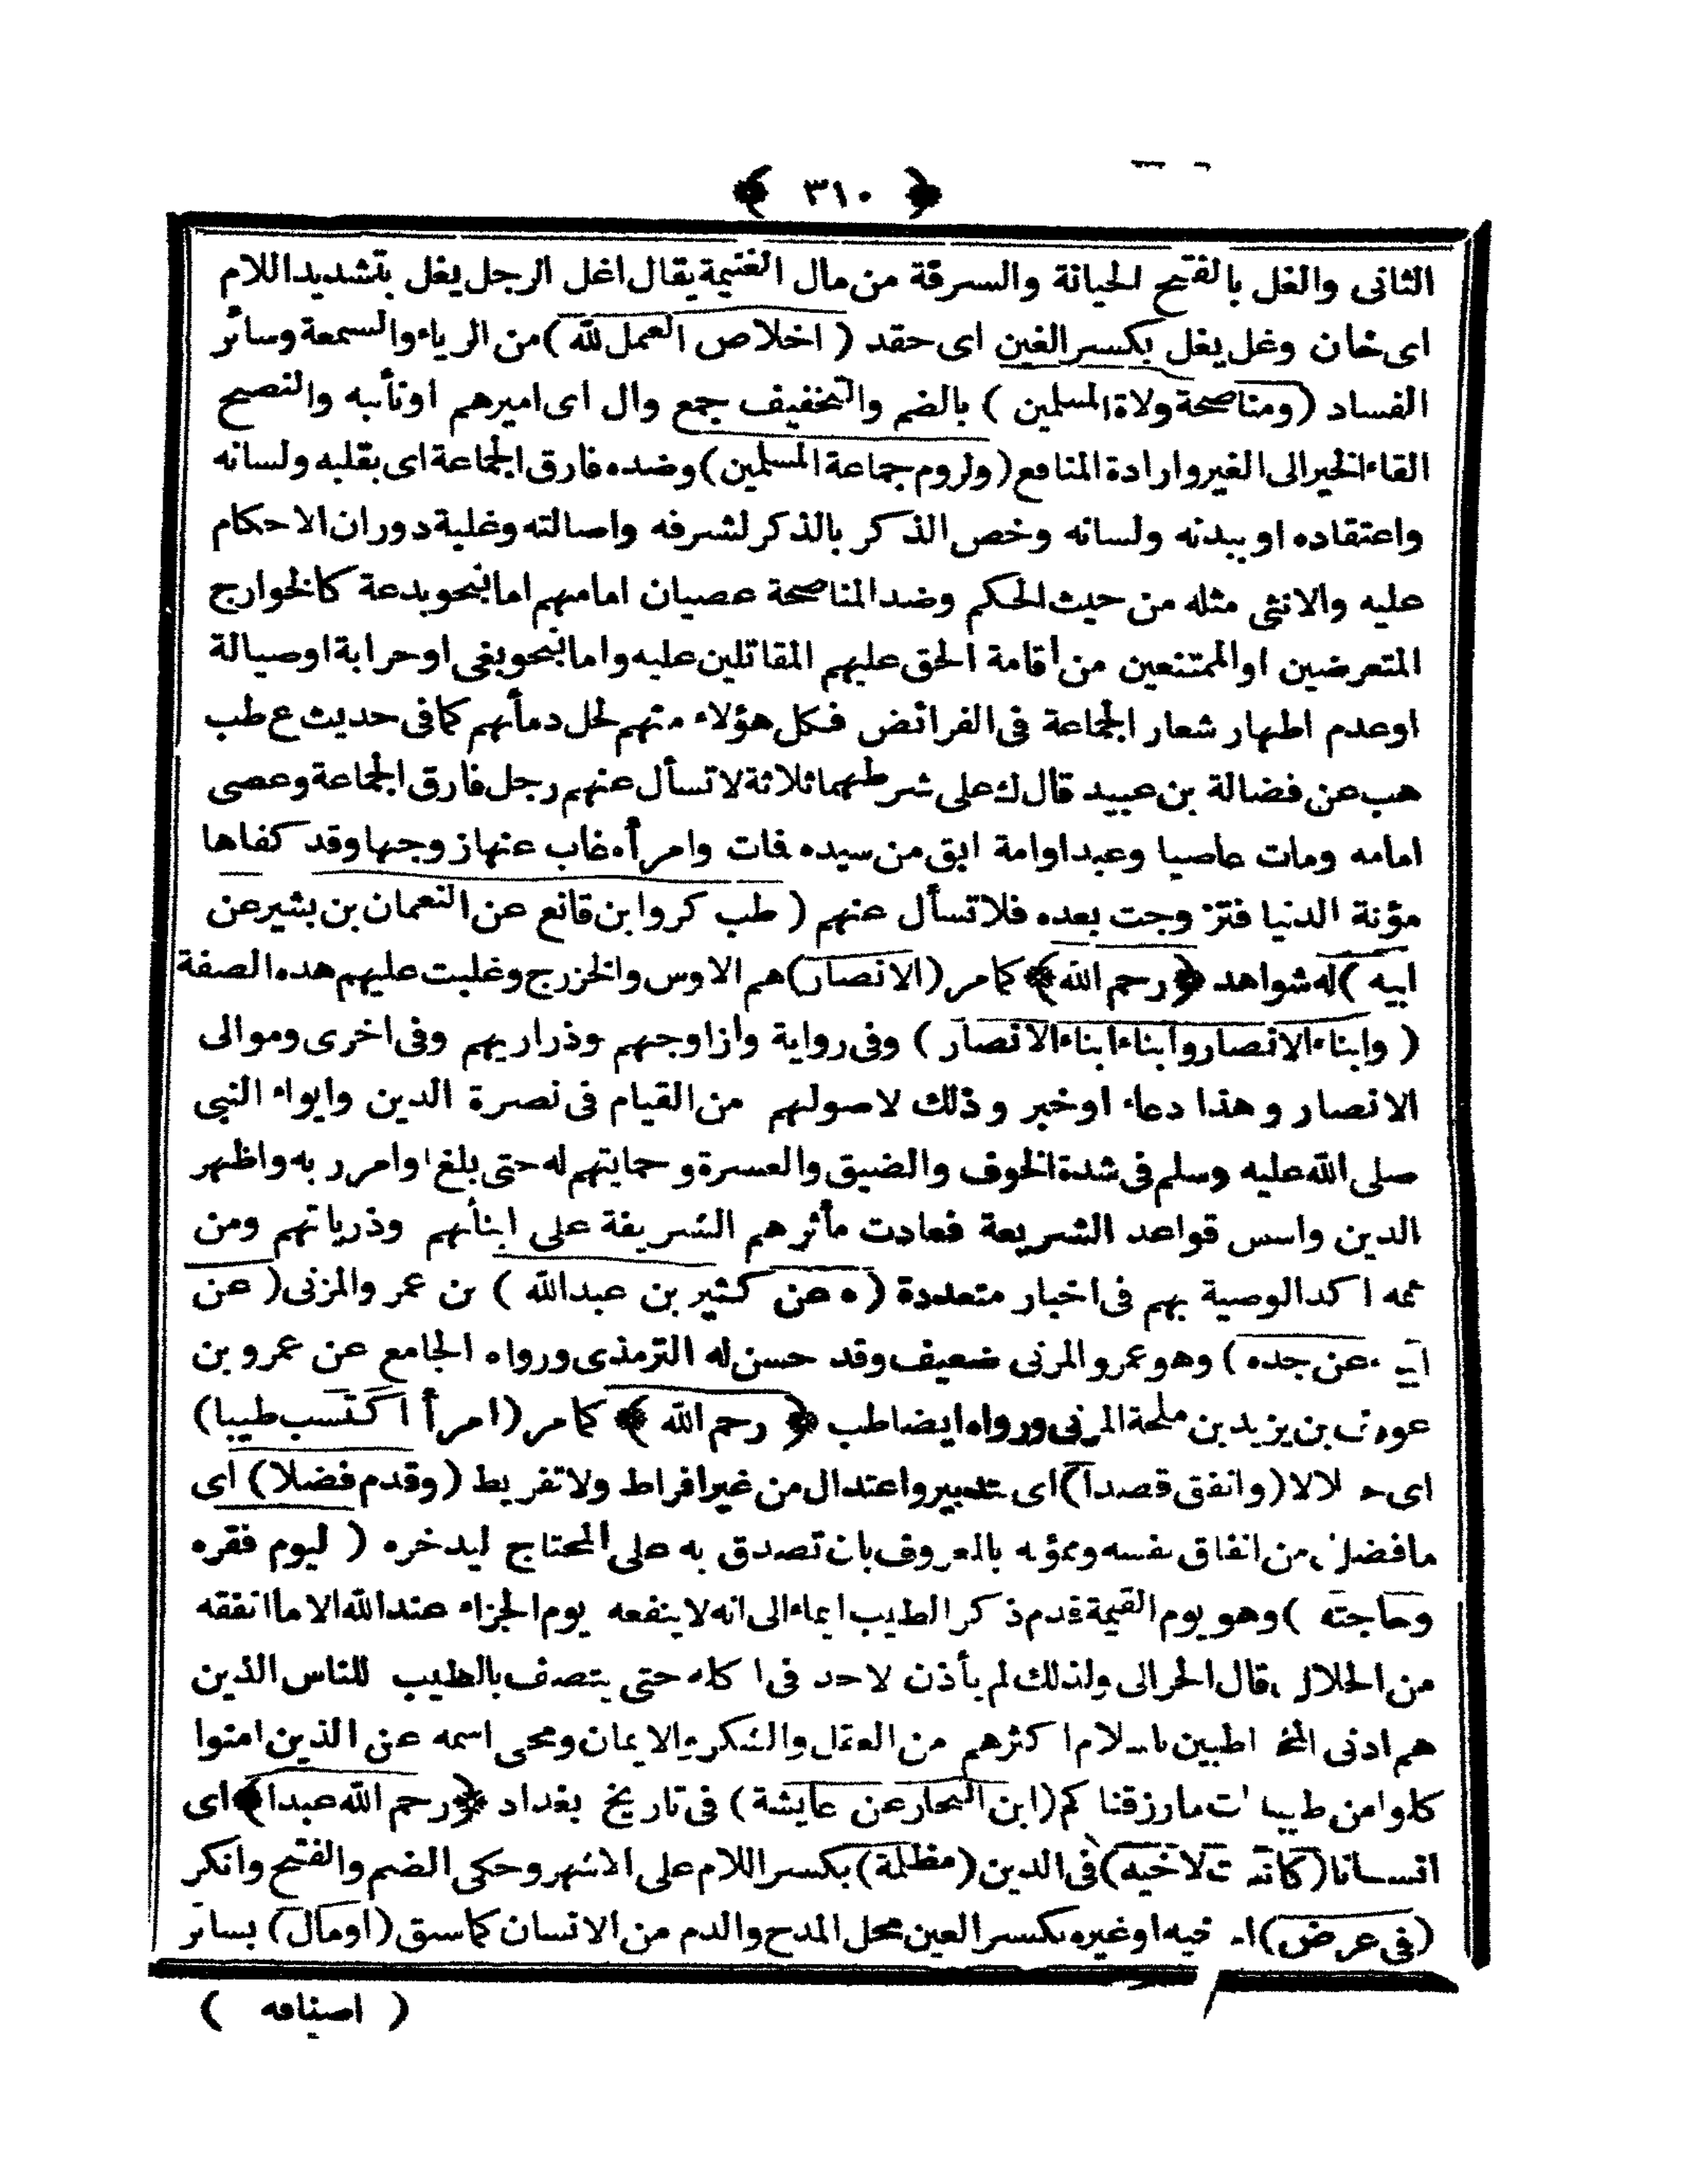 ﴿ ٣١٠ ﴾
الثانى والغل بالفتح الخيانة والسرقة من مال الغنيمة يقال اغل الرجل يغل بتشديد اللام
اى خان وغل يغل بكسر الغين اى حقد ( اخلاص العمل لله ) من الرياء والسمعة وسائر
الفساد ( ومناصحة ولاة المسلمين ) بالضم والتخفيف جمع وال اى اميرهم اونائبه والنصح
القاء الخير الى الغير وارادة المنافع ( ولزوم جماعة المسلمين ) وضده فارق الجماعة اى بقلبه ولسانه
واعتقاده او ببدنه ولسانه وخص الذكر بالذكر لشرفه واصالته وغلبة دوران الاحكام
عليه والانثى مثله من حيث الحكم وضد المناصحة عصيان امامهم اما بنحو بدعة كالخوارج
المتعرضين او الممتنعين من اقامة الحق عليهم المقاتلين عليه واما بنحو بغى او حرابة او صيالة
او عدم اظهار شعار الجماعة فى الفرائض فكل هؤلاء منهم لحل دمائهم كما فى حديث ع طب
هب عن فضالة بن عبيد قال ك على شرطهما ثلاثة لا تسأل عنهم رجل فارق الجماعة وعصى
امامه ومات عاصيا وعبد او امة ابق من سيده فات وامرأه غاب عنها زوجها وقد كفاها
مؤنة الدنيا فتزوجت بعده فلا تسأل عنهم ( طب كر وابن قانع عن النعمان بن بشير عن
ابيه ) له شواهد ﴿ رحم الله ﴾ كما مر ( الانصار ) هم الاوس والخزرج وغلبت عليهم هذه الصفة
( وابناء الانصار وابناء ابناء الانصار ) وفى رواية وازاوجهم وذراريهم وفى اخرى وموالى
الانصار وهذا دعاء او خبر وذلك لاصولهم من القيام فى نصرة الدين وايواء النبى
صلى الله عليه وسلم فى شدة الخوف والضيق والعسرة وحمايتهم له حتى بلغ اوامر ربه واظهر
الدين واسس قواعد الشريعة فعادت مأثرهم الشريفة على ابنائهم وذرياتهم ومن
ثمه اكد الوصية بهم فى اخبار متعددة ( ه عن كثير بن عبدالله ) بن عمر والمزنى ( عن
ابيه عن جده ) وهو عمرو المزنى ضعيف وقد حسن له الترمذى ورواه الجامع عن عمرو بن
عوف بن يزيد بن ملحة المزنى ورواه ايضا طب ﴿ رحم الله ﴾ كما مر ( امرأ اكتسب طيبا )
اى حلالا ( وانفق قصدا ) اى بتدبير واعتدال من غير افراط ولا تفريط ( وقدم فضلا ) اى
ما فضل من انفاق نفسه وممؤنه بالمعروف بان تصدق به على المحتاج ليدخره ( ليوم فقره
وحاجته ) وهو يوم القيمة قدم ذكر الطيب ايماء الى انه لا ينفعه يوم الجزاء عند الله الا ما انفقه
من الحلال قال الحرالى ولذلك لم يأذن لاحد فى اكله حتى يتصف بالطيب للناس الذين
هم ادنى المخاطبين باسلام اكثرهم من العقل والشكر والايمان ومحى اسمه عن الذين امنوا
كلوا من طيبات ما رزقناكم ( ابن النجار عن عايشة ) فى تاريخ بغداد ﴿ رحم الله عبدا ﴾ اى
انسانا ( كانت لاخيه ) فى الدين ( مظلمة ) بكسر اللام على الاشهر وحكى الضم والفتح وانكر
( فى عرض ) اخيه او غيره بكسر العين محل المدح والذم من الانسان كما سبق ( او مال ) بسائر
( اصنافه )